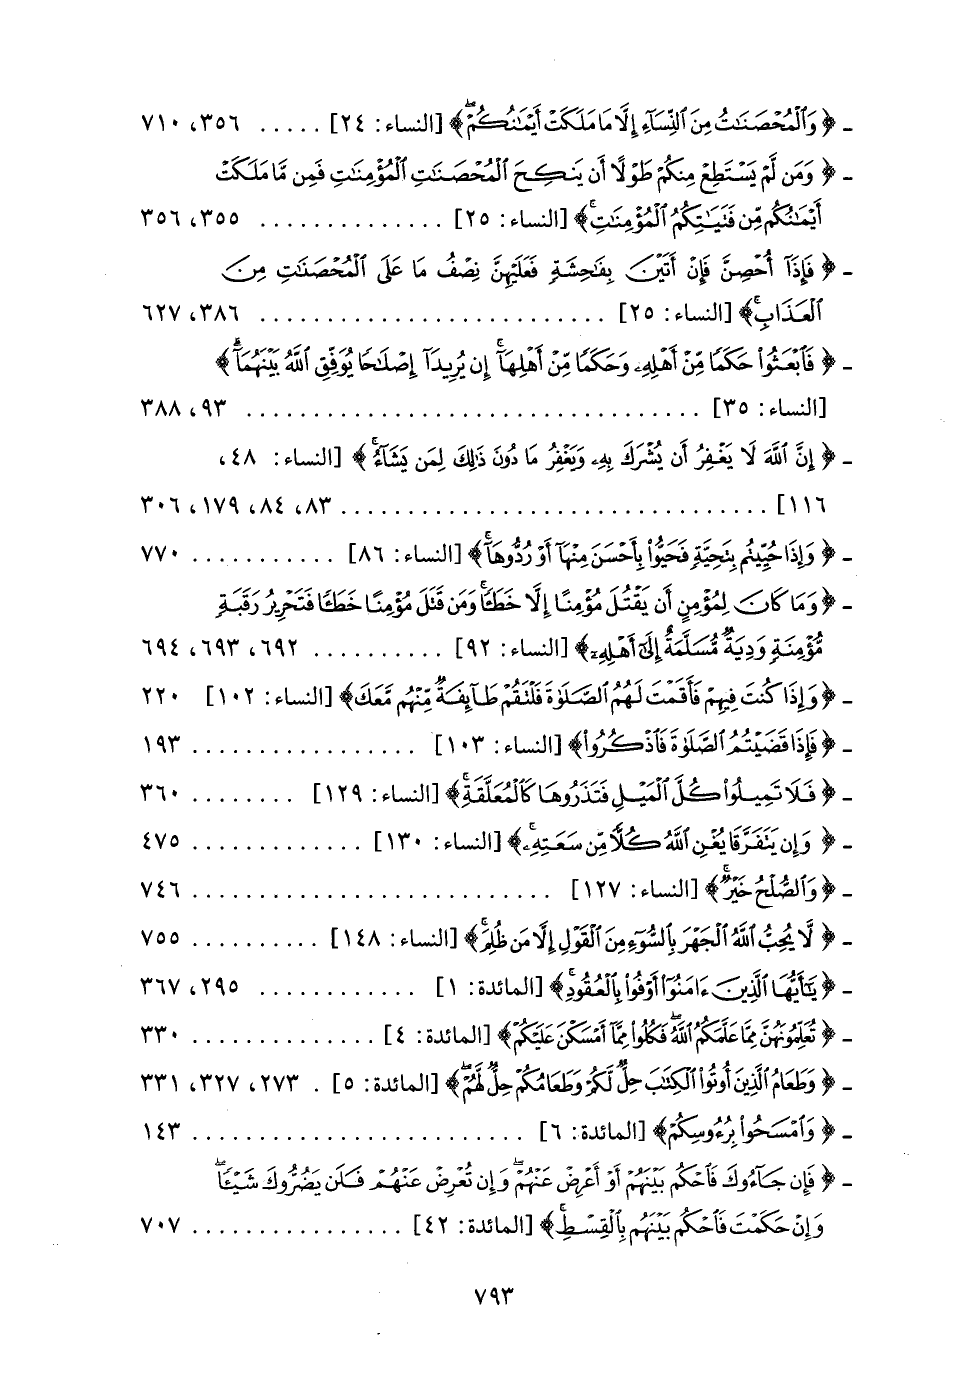 ـ ﴿ وَٱلْمُحْصَنَٰتُ مِنَ ٱلنِّسَآءِ إِلَّا مَا مَلَكَتْ أَيْمَٰنُكُمْۖ ﴾ [النساء: ٢٤] ..... ٣٥٦، ٧١٠
ـ ﴿ وَمَن لَّمْ يَسْتَطِعْ مِنكُمْ طَوْلًا أَن يَنكِحَ ٱلْمُحْصَنَٰتِ ٱلْمُؤْمِنَٰتِ فَمِن مَّا مَلَكَتْ
أَيْمَٰنُكُم مِّن فَتَيَٰتِكُمُ ٱلْمُؤْمِنَٰتِۚ ﴾ [النساء: ٢٥] .............. ٣٥٥، ٣٥٦
ـ ﴿ فَإِذَآ أُحْصِنَّ فَإِنْ أَتَيْنَ بِفَٰحِشَةٍ فَعَلَيْهِنَّ نِصْفُ مَا عَلَى ٱلْمُحْصَنَٰتِ مِنَ
ٱلْعَذَابِۚ ﴾ [النساء: ٢٥] .......................... ٣٨٦، ٦٢٧
ـ ﴿ فَٱبْعَثُوا۟ حَكَمًا مِّنْ أَهْلِهِۦ وَحَكَمًا مِّنْ أَهْلِهَآۚ إِن يُرِيدَآ إِصْلَٰحًا يُوَفِّقِ ٱللَّهُ بَيْنَهُمَآۗ ﴾
[النساء: ٣٥] .................................. ٩٣، ٣٨٨
ـ ﴿ إِنَّ ٱللَّهَ لَا يَغْفِرُ أَن يُشْرَكَ بِهِۦ وَيَغْفِرُ مَا دُونَ ذَٰلِكَ لِمَن يَشَآءُۚ ﴾ [النساء: ٤٨،
١١٦] ................................ ٨٣، ٨٤، ١٧٩، ٣٠٦
ـ ﴿ وَإِذَا حُيِّيتُم بِتَحِيَّةٍ فَحَيُّوا۟ بِأَحْسَنَ مِنْهَآ أَوْ رُدُّوهَآۚ ﴾ [النساء: ٨٦] ........... ٧٧٠
ـ ﴿ وَمَا كَانَ لِمُؤْمِنٍ أَن يَقْتُلَ مُؤْمِنًا إِلَّا خَطَـًٔاۚ وَمَن قَتَلَ مُؤْمِنًا خَطَـًٔا فَتَحْرِيرُ رَقَبَةٍ
مُّؤْمِنَةٍ وَدِيَةٌ مُّسَلَّمَةٌ إِلَىٰٓ أَهْلِهِۦٓ ﴾ [النساء: ٩٢] .......... ٦٩٢، ٦٩٣، ٦٩٤
ـ ﴿ وَإِذَا كُنتَ فِيهِمْ فَأَقَمْتَ لَهُمُ ٱلصَّلَوٰةَ فَلْتَقُمْ طَآئِفَةٌ مِّنْهُم مَّعَكَ ﴾ [النساء: ١٠٢] ٢٢٠
ـ ﴿ فَإِذَا قَضَيْتُمُ ٱلصَّلَوٰةَ فَٱذْكُرُوا۟ ﴾ [النساء: ١٠٣] ................. ١٩٣
ـ ﴿ فَلَا تَمِيلُوا۟ كُلَّ ٱلْمَيْلِ فَتَذَرُوهَا كَٱلْمُعَلَّقَةِۚ ﴾ [النساء: ١٢٩] ........ ٣٦٠
ـ ﴿ وَإِن يَتَفَرَّقَا يُغْنِ ٱللَّهُ كُلًّا مِّن سَعَتِهِۦۚ ﴾ [النساء: ١٣٠] ............. ٤٧٥
ـ ﴿ وَٱلصُّلْحُ خَيْرٌۗ ﴾ [النساء: ١٢٧] ........................... ٧٤٦
ـ ﴿ لَّا يُحِبُّ ٱللَّهُ ٱلْجَهْرَ بِٱلسُّوٓءِ مِنَ ٱلْقَوْلِ إِلَّا مَن ظُلِمَۚ ﴾ [النساء: ١٤٨] .......... ٧٥٥
ـ ﴿ يَٰٓأَيُّهَا ٱلَّذِينَ ءَامَنُوٓا۟ أَوْفُوا۟ بِٱلْعُقُودِۚ ﴾ [المائدة: ١] ............ ٢٩٥، ٣٦٧
ـ ﴿ تُعَلِّمُونَهُنَّ مِمَّا عَلَّمَكُمُ ٱللَّهُۖ فَكُلُوا۟ مِمَّآ أَمْسَكْنَ عَلَيْكُمْ ﴾ [المائدة: ٤] .............. ٣٣٠
ـ ﴿ وَطَعَامُ ٱلَّذِينَ أُوتُوا۟ ٱلْكِتَٰبَ حِلٌّ لَّكُمْ وَطَعَامُكُمْ حِلٌّ لَّهُمْۖ ﴾ [المائدة: ٥] . ٢٧٣، ٣٢٧، ٣٣١
ـ ﴿ وَٱمْسَحُوا۟ بِرُءُوسِكُمْ ﴾ [المائدة: ٦] ......................... ١٤٣
ـ ﴿ فَإِن جَآءُوكَ فَٱحْكُم بَيْنَهُمْ أَوْ أَعْرِضْ عَنْهُمْۖ وَإِن تُعْرِضْ عَنْهُمْ فَلَن يَضُرُّوكَ شَيْـًٔاۖ
وَإِنْ حَكَمْتَ فَٱحْكُم بَيْنَهُم بِٱلْقِسْطِۚ ﴾ [المائدة: ٤٢] ................ ٧٠٧
٧٩٣